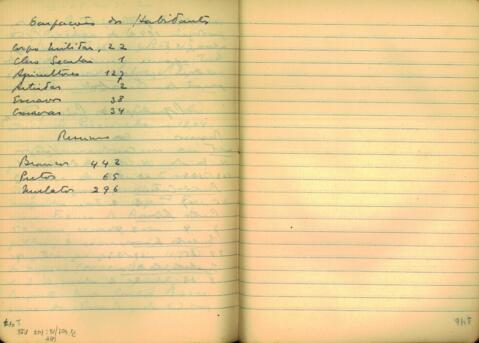 Occupações dos Habitantes
Corpo Militar, 22
Clero Secular 1
Agricultores 127
Artistas 2
Escravos 38
Escravas 34
Resumo
Brancos 442
Pretos 65
Mulatos 296